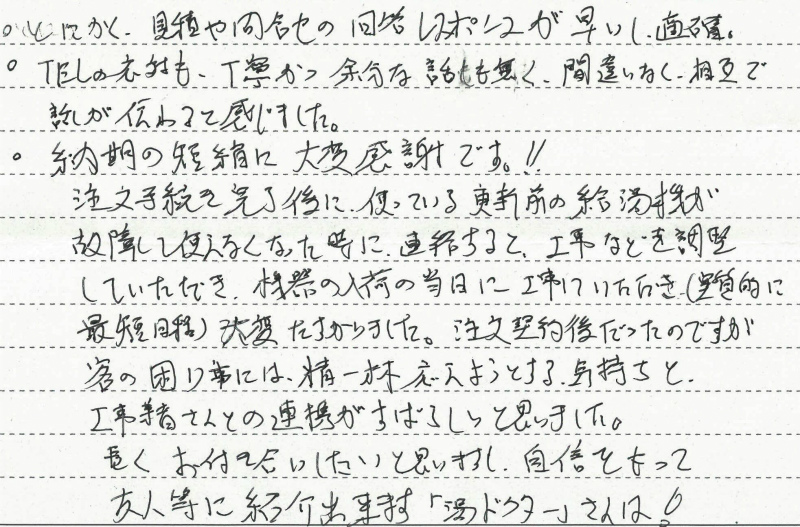 。とにかく、見積や問合せの回答レスポンスが早いし、適確。
。TELの応対も、丁寧かつ余分な話しも無く、間違いなく、相互で
話しが伝わると感じました。
。納期の短縮に大変感謝です。!!
注文手続を完了後に、使っている更新前の給湯機が
故障して使えなくなった時に、連絡すると、工事などを調整
していただき、機器の入荷の当日に工事していただき、(実質的に
最短日程)大変たすかりました。注文契約後だったのですが
客の困り事には、精一杯応えようとする気持ちと、
工事業者さんとの連携がすばらしいと思いました。
長くお付き合いしたいと思いますし、自信をもって
友人等に紹介出来ます「湯ドクター」さんは!